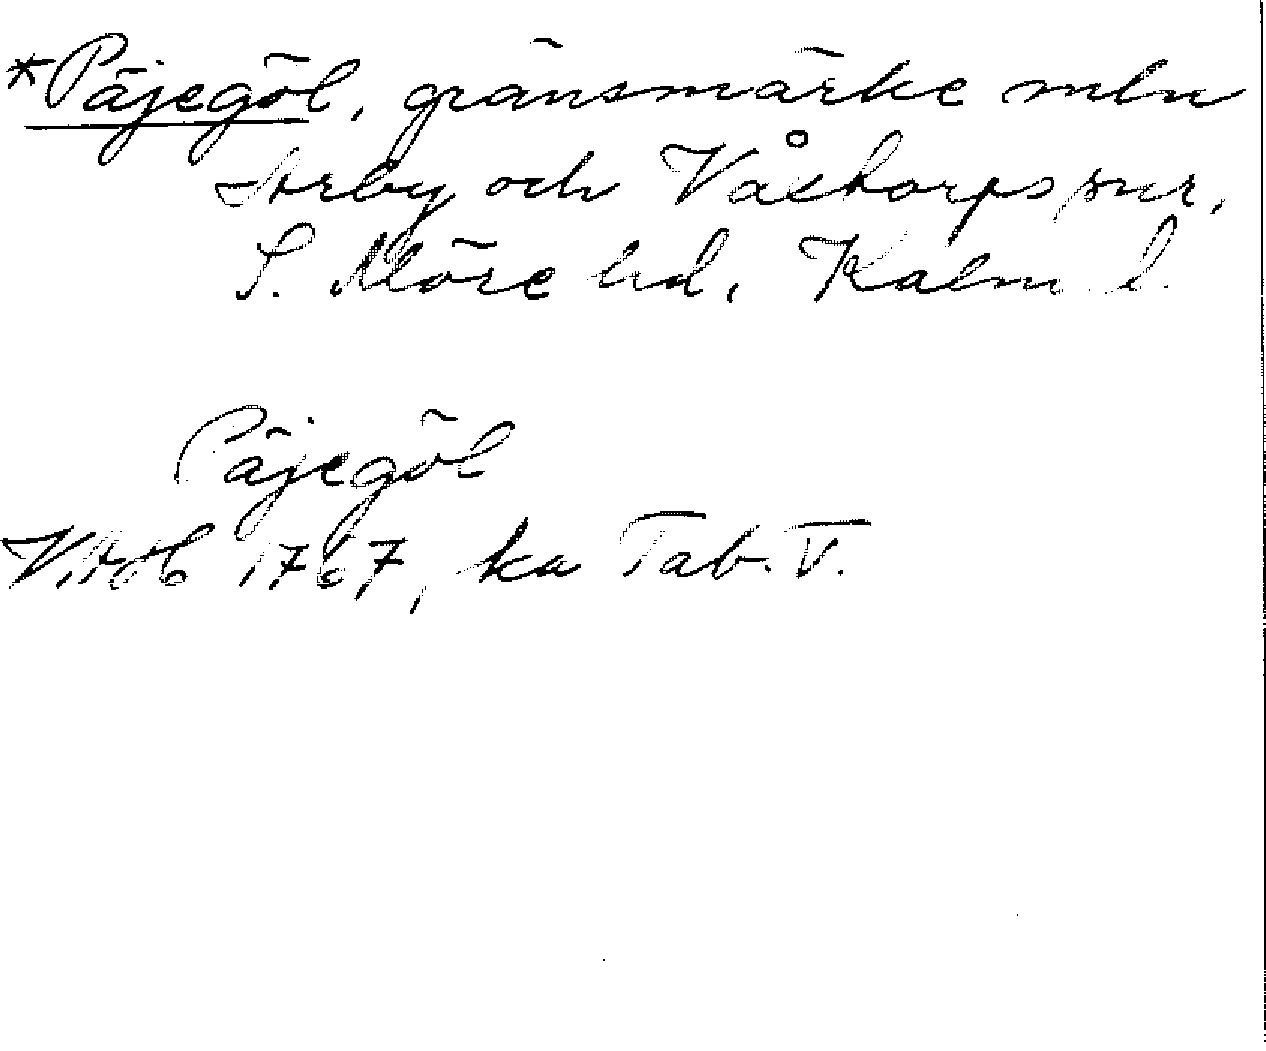 *Päjegöl, gränsmärke mln
Arby och Våxtorps snr,
S. Möre hd, Kalm l.
Päjegöl
VAH 1767, ka Tab. V.